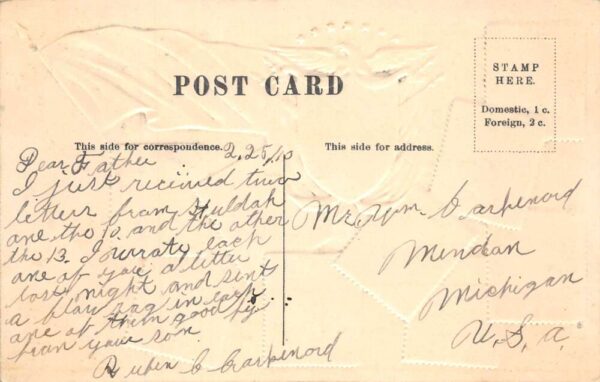 POST CARD
STAMP
HERE.
Domestic, 1 c.
Foreign, 2 c.
This side for correspondence.
This side for address.
2,25,10
Dear Father
I just reciived two
letters from Huldah
one the 10. and the other
the 13. I wrate each
one of you a letter
last night and sent
a blow rag in each
one of them good by
from your son
Ruben C Carpenord
Mr. Wm Carpenord
Mendan
Michigan
U.S.a.